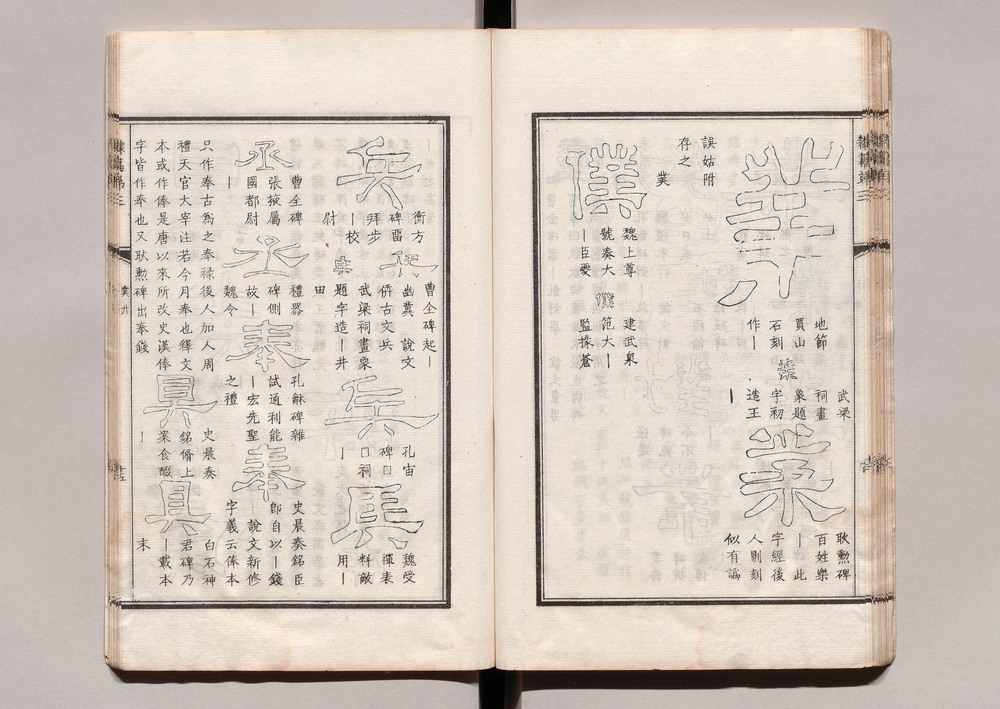 地節
買山
石刻
作丨
業
武梁
祠畫
象題
字初
造王
丨
業
耿勲碑
百姓樂
丨此
字經後
人剔刻
似有譌
誤姑附
存之
菐
僕
魏上尊
號奏大
丨臣要
僕
建武泉
范大丨
監掾蒼
兵
衡方
碑留
拜步
丨校
尉
兵
曹全碑起丨
幽冀 說文
古文兵
武梁祠畫象
題字造丨井
田
兵
孔宙
碑囗
囗祠
丨
兵
魏受
禪表
料敵
用丨
丞
曹全碑
張掖屬
國都尉
丨
丞
禮器
碑側
故丨
魏令
奉
孔龢碑雜
試通利能
丨宏先聖
之禮
奉
史晨奏銘臣
即自以丨錢
說文新修
字義云俸本
只作奉古爲之奉祿後人加人周
禮天官大宰注若今月奉也釋文
本或作俸是唐以來所改史漢俸
字皆作奉也又耿勲碑出奉錢
具
史晨奏
銘脩上
案食醊
丨
具
白石神
君碑乃
丨載本
末